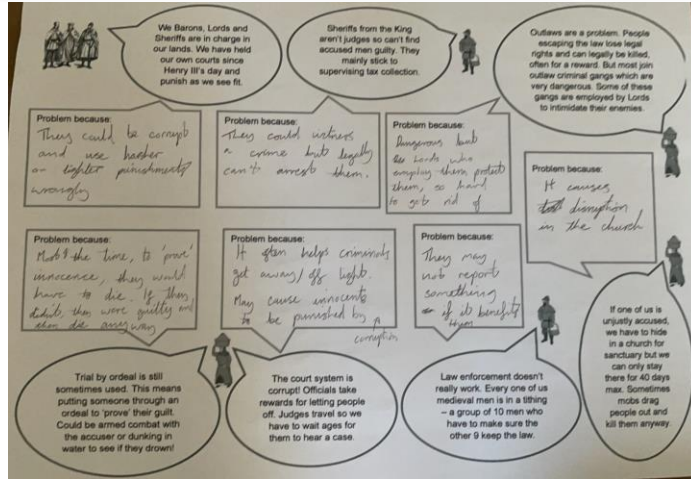 We Barons, Lords and
Sheriffs are in charge in
our lands. We have held
our own courts since
Henry III's day and
punish as we see fit.
Sheriffs from the King
aren't judges so can't find
accused men guilty. They
mainly stick to
supervising tax collection.
Outlaws are a problem. People
escaping the law lose legal
rights and can legally be killed,
often for a reward. But most join
outlaw criminal gangs which are
very dangerous. Some of these
gangs are employed by Lords
to intimidate their enemies.
Problem because:
They could be corrupt
and use harsher
or lighter punishments
wrongly
Problem because:
They could witness
a crime but legally
can't arrest them.
Problem because:
Dangerous
Lords who
employ them protect
them, so hard
to get rid of
Problem because:
It causes
disruption
in the church
Problem because:
the time, to 'prove'
innocence, they would
have to die. If they
didn't, they were guilty and
then die anyway
Problem because:
It often helps criminals
get away/off light.
May cause innocents
to be punished by
corruption
Problem because:
They may
not report
something
if it benefits
them
Trial by ordeal is still
sometimes used. This means
putting someone through an
ordeal to 'prove' their guilt.
Could be armed combat
with the accuser or dunking in
water to see if they drown!
The court system is
corrupt! Officials take
rewards for letting people
off. Judges travel so we
have to wait ages for
them to hear a case.
Law enforcement doesn't
really work. Every one of us
medieval men is in a tithing
– a group of 10 men who
have to make sure the
other 9 keep the law.
If one of us is
unjustly accused,
we have to hide
in a church for
sanctuary but we
can only stay
there for 40 days
max. Sometimes
mobs drag
people out and
kill them anyway.